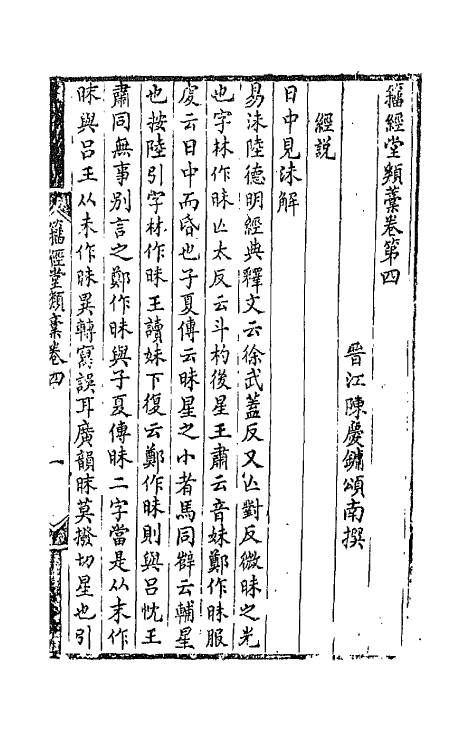 籀經堂類藁卷第四
晉江陳慶鏞頌南撰
經説
日中見沬解
易沬陸德明經典釋文云徐武蓋反又亾對反微昧之光
也字林作昧亾太反云斗杓後星王肅云音妹鄭作昧服
虔云日中而昏也子夏傳云昧星之小者馬同辥云輔星
也按陸引字林作昧王讀妹下復云鄭作昧則與呂忱王
肅同無事别言之鄭作昧與子夏傳昧二字當是从末作
昩與呂王从未作昧異轉寫誤耳廣韻昩莫撥切星也引
籀經堂類藁卷四
一